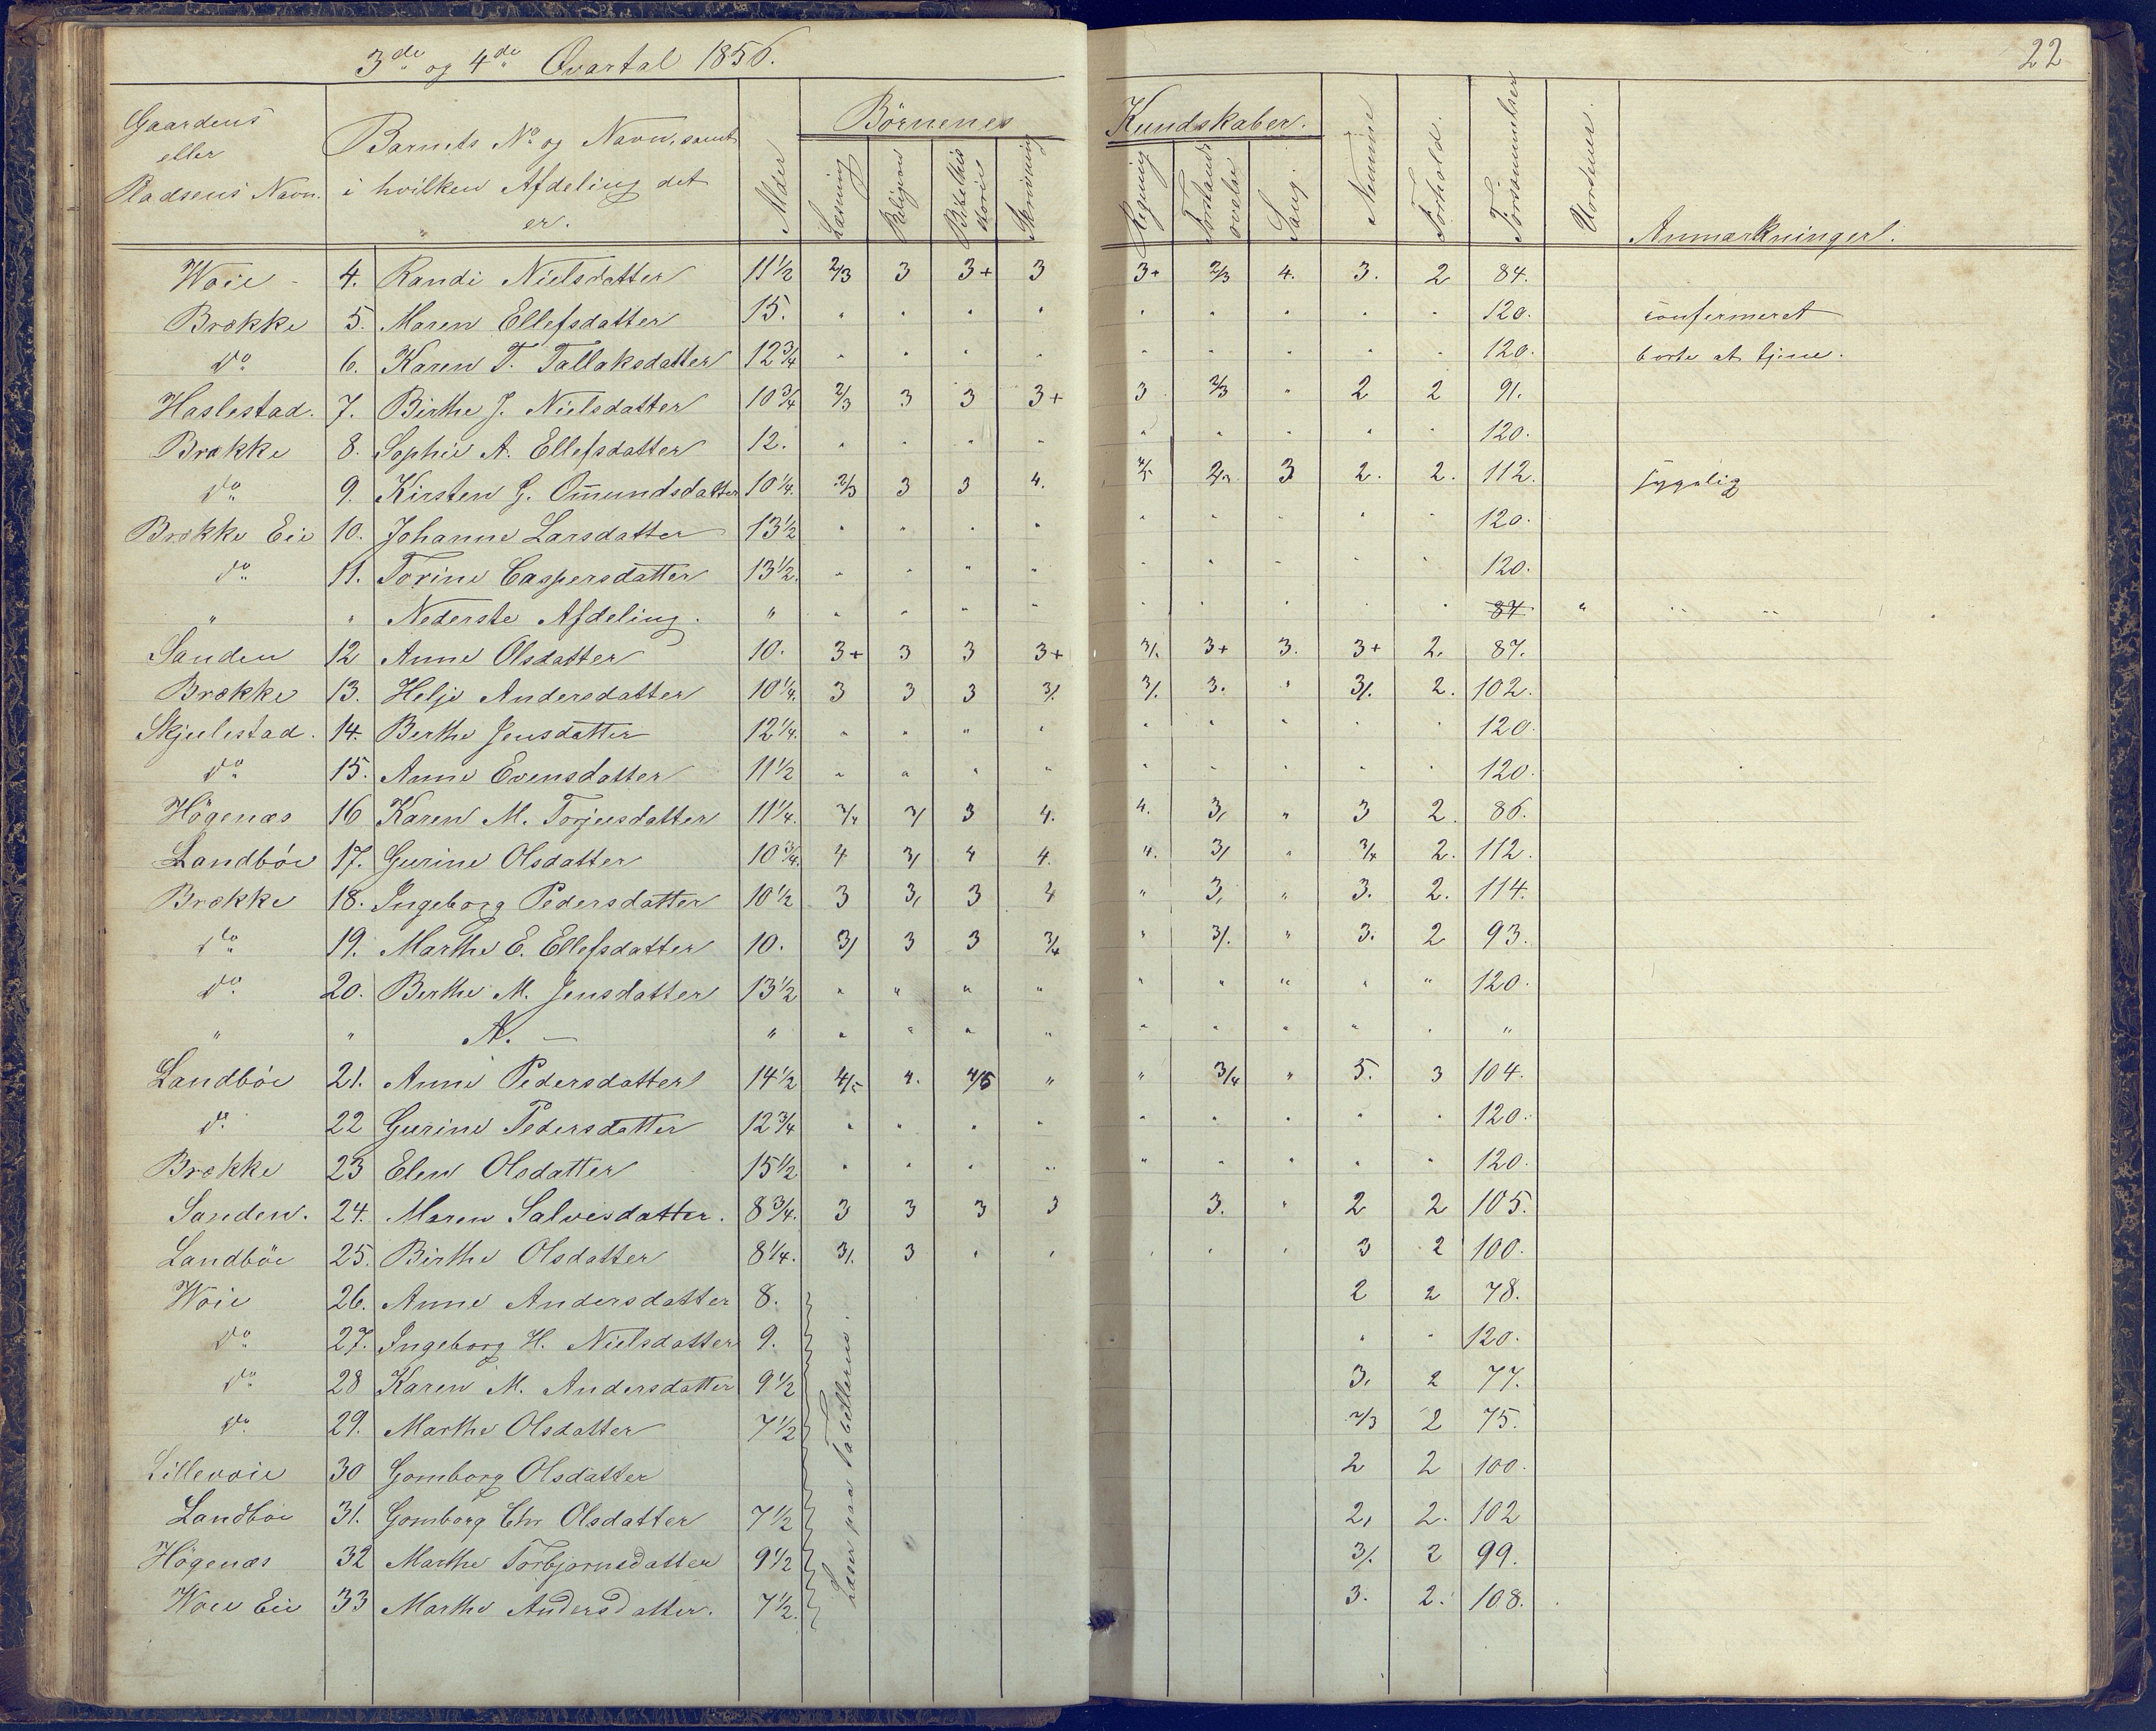 3de og 4de Qvartal 1856.
22
Gaardens eller Pladsens Navn.
Barnets No og Navn, samt i hvilken Afdeling det er.
Alder
Børnenes Kundskaber.
Læsning
Religion
Bibelhistorie
Skrivning
Regning
Forstandsøvelse
Sang.
Nemme
Forhold.
Forsømmelser
Uordener.
Anmærkninger.
Woie - 4. Randi Nielsdatter 11½ 2/3 3 3+ 3 3+ 2/3 4. 3. 2 84.
Brække 5. Maren Ellefsdatter 15. " " " " " " " " " 120. confirmeret
do 6. Karen T. Tallaksdatter 12¾ " " " " " " " " " 120. borte at tjene.
Haslestad. 7. Birthe J. Nielsdatter 10¾ 2/3 3 3 3+ 3 2/3 " 2 2 91.
Brække 8. Sophie A. Ellefsdatter 12. " " " " " " " " " 120.
do 9. Kirsten G. Omundsdatter 10¼. 2/3 3 3 4. 2/3 3 2. 2. 112. sygelig
Brække Eie 10. Johanne Larsdatter 13½ " " " " " " " " " 120.
do 11. Torine Caspersdatter 13½. " " " " " " " " " 120.
" " Nederste Afdeling. " " " " " " " " " " 84 " " "
Sanden 12 Anne Olsdatter 10. 3+ 3 3 3+ 3/. 3+ 3. 3+ 2. 87.
Brække 13. Helje Andersdatter 10¼. 3 3 3 3/. 3/. 3. " 3/. 2. 102.
Skjulestad. 14. Berthe Jensdatter 12¼. " " " " " " " " " 120.
do 15. Anne Evensdatter 11½ " " " " " " " " " 120.
Högenæs 16 Karen M. Torjusdatter 11¼. 3/4 3/ 3 4. 4. 3, " 3 2. 86.
Landböe 17. Gurine Olsdatter 10¾. 4 3, 4 4. 4. 3, " 3/4 2. 112.
Brække 18. Ingeborg Pedersdatter 10½ 3 3, 3 4 " 3, " 3. 2. 114.
do 19. Marthe E. Ellefsdatter 10. 3/ 3 3 3/4 " 3/. " 3. 2 93.
do 20. Berthe M. Jensdatter 13½ " " " " " " " " " 120.
" " A. — " " " " " " " " " " "
Landböe 21. Anne Pedersdatter 14½ 4/5 4. 4/5 " " 3/4 " 5. 3 104.
do 22 Gurine Pedersdatter 12¾ " " " " " " " " " 120.
Brække 23 Elen Olsdatter 15½ " " " " " " " " " 120.
Sanden. 24. Maren Salvesdatter. 8¾. 3 3 3 3 3. " 2 2 105.
Landböe 25. Birthe Olsdatter 8¼. 3/. 3 " " " " " 3 2 100.
Woie 26. Anne Andersdatter 8. 2 2 78.
do 27. Ingeborg H. Nielsdatter 9. " " 120.
do 28 Karen M. Andersdatter 9½ 3, 2 77.
do 29. Marthe Olsdatter 7½ 2/3 2 75.
Lillevoie 30 Gomborg Olsdatter 2 2 100.
Landböe 31. Gomborg Chr Olsdatter 7½ 2, 2. 102
Högenæs 32 Marthe Torbjornsdatter 9½ 3/. 2 99.
Woie Eie 33 Marthe Andersdatter. 7½. 3. 2. 108.
Læser paa Tabellerne.